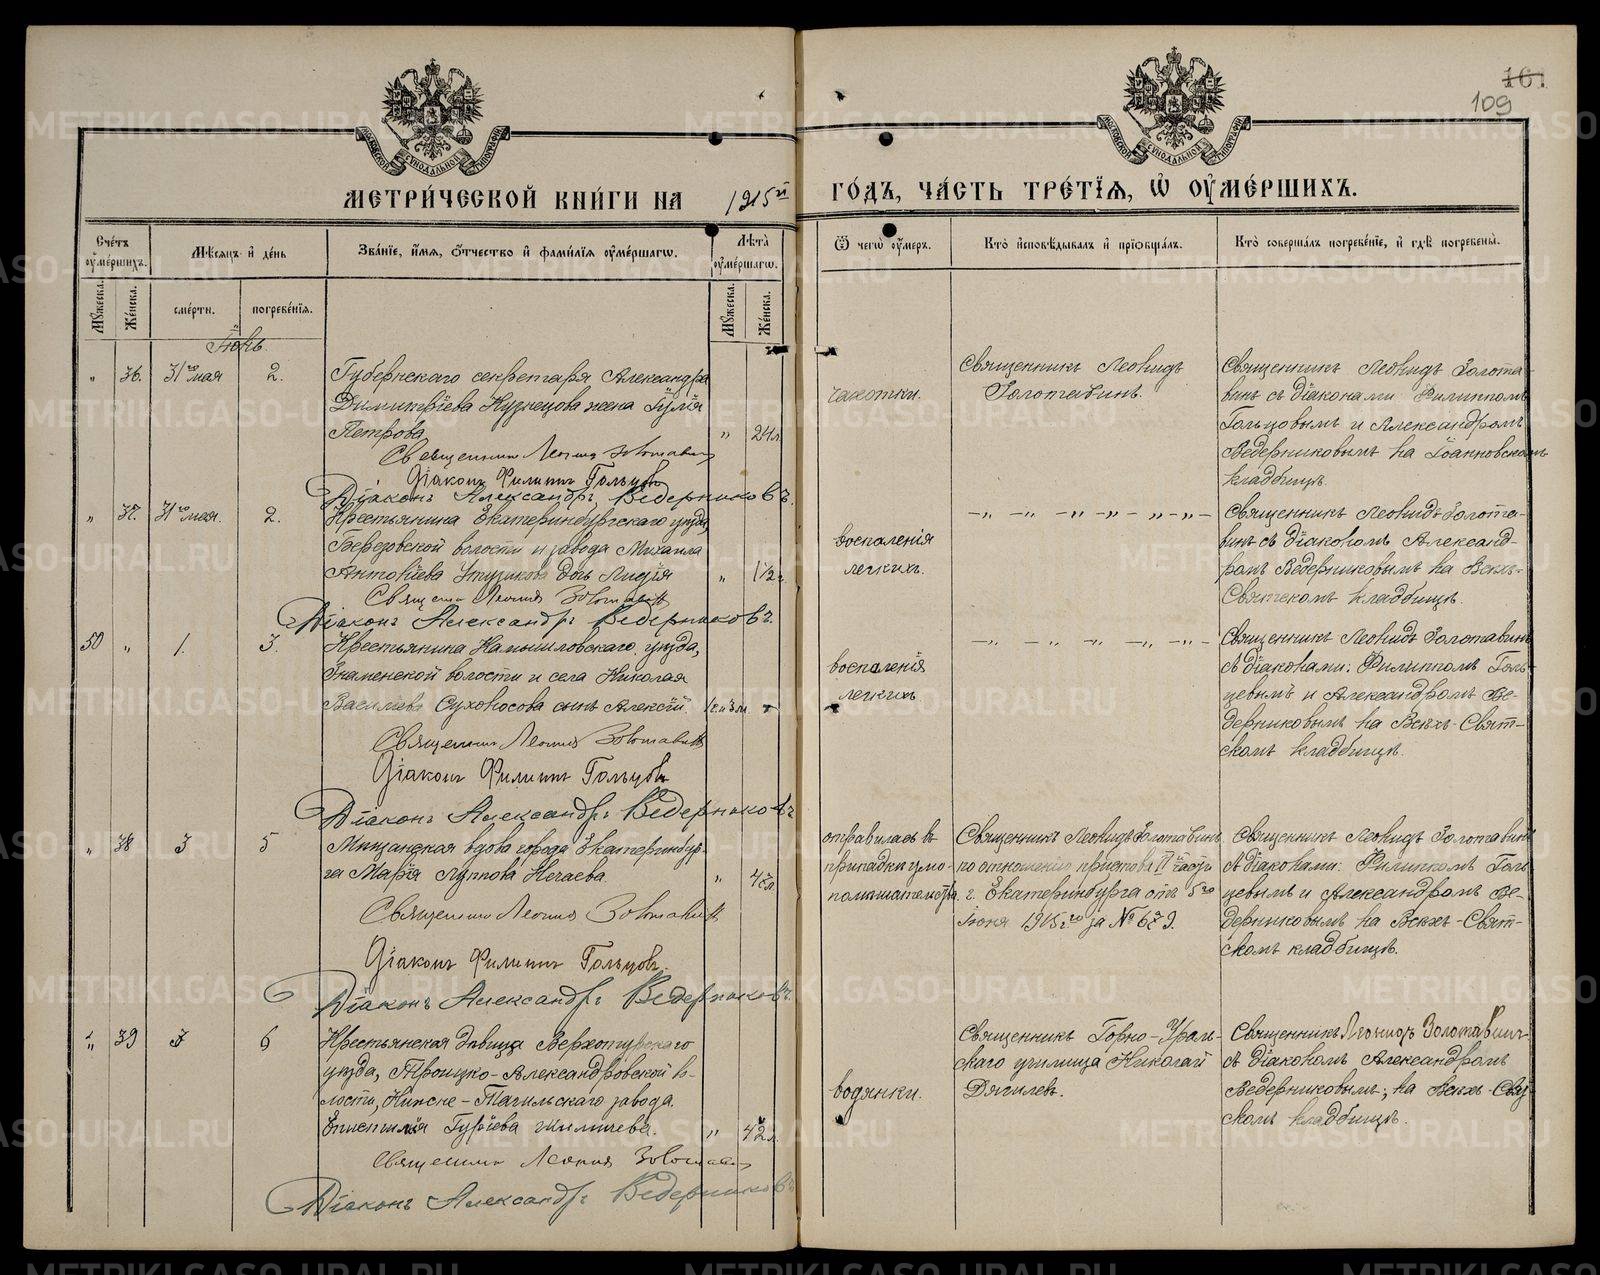 161
109
МОСКОВСКОЙ СѴНОДАЛЬНОЙ ТИПОГРАФІИ
МОСКОВСКОЙ СѴНОДАЛЬНОЙ ТИПОГРАФІИ
МЕТРИ́ЧЕСКОЙ КНИ́ГИ НА 1915й ГО́ДЪ, ЧА́СТЬ ТРЕ́ТІѦ, Ѡ҆ ОУ҆МЕ́РШИХЪ.
Сче́тъ оу҆ме́ршихъ.
Мѣ́сяцъ и҆ де́нь
Зва́нїе, и҆́мя, ѻ҆́тчество и҆ фами́лїя оу҆ме́ршагѡ.
Лѣ́та оу҆ме́ршагѡ.
Ѿ чегѡ̀ оу҆́меръ.
Кто̀ и҆сповѣ́дывалъ и҆ прїѡбща́лъ.
Кто̀ соверша́лъ погребе́нїе, и҆ гдѣ̀ погребены̀.
Мꙋ́жеска.
Же́нска.
сме́рти.
погребе́нїя.
Мꙋ́жеска.
Же́нска.
Іюнь.
" 36. 31го мая 2.
Губернскаго секретаря Александра
Димитріева Кузнецова жена Юлія
Петрова " 24 л.
Священникъ Леонидъ Золотавинъ
Діаконъ Филиппъ Гольцовъ
Діаконъ Александръ Ведерниковъ.
чахотки.
Священникъ Леонидъ
Золотавинъ.
Священникъ Леонидъ Золота-
винъ съ діаконами Филиппомъ
Гольцовымъ и Александромъ
Ведерниковымъ на Іоанновскомъ
кладбищѣ.
" 37. 31го мая. 2.
Крестьянина Екатеринбургскаго уѣзда,
Березовской волости и завода Михаила
Антоніева дочь Лидія " 1½ г.
Священникъ Леонидъ Золотавинъ
Діаконъ Александръ Ведерниковъ.
воспаленія
легкихъ.
—"— —"— —"— —"— —"— —"—
Священникъ Леонидъ Золота-
винъ съ діакономъ Александ-
ромъ Ведерниковымъ на Всѣхъ-
Святскомъ кладбищѣ.
50 " 1. 3.
Крестьянина Камышловскаго уѣзда,
Знаменской волости и села Николая
Васильева Сухоносова сынъ Алексѣй. 1 г. и 3 м. "
Священникъ Леонидъ Золотавинъ
Діаконъ Филиппъ Гольцовъ
Діаконъ Александръ Ведерниковъ
воспаленія
легкихъ
—"— — —"— —"— —"—
Священникъ Леонидъ Золотавинъ
съ діаконами: Филиппомъ Голь-
цевымъ и Александромъ Ве-
дерниковымъ на Всѣхъ-Свят-
скомъ кладбищѣ.
" 38 3 5
Мѣщанская вдова города Екатеринбур-
га Марія Луппова Нечаева. " 42 л.
Священникъ Леонидъ Золотавинъ
Діаконъ Филиппъ Гольцовъ
Діаконъ Александръ Ведерниковъ.
отравилась въ
припадкѣ умо-
помѣшательства.
Священникъ Леонидъ Золотавинъ
по отношенію пристава II части
г. Екатеринбурга отъ 5го
Іюня 1915го за №
Священникъ Леонидъ Золотавинъ
съ діаконами: Филиппомъ Голь-
цевымъ и Александромъ Ве-
дерниковымъ на Всѣхъ-Свят-
скомъ кладбищѣ.
" 39 3 6
Крестьянская дѣвица Верхотурскаго
уѣзда, Троицко-Александровской во-
лости, Нижне-Тагильскаго завода.
Епистимія Гурьева " 42 л.
Священникъ Леонидъ Золотавинъ
Діаконъ Александръ Ведерниковъ
водянки.
Священникъ Горно-Ураль-
скаго училища Николай
Дягилевъ.
Священникъ Леонидъ Золотавинъ
съ діакономъ Александромъ
Ведерниковымъ, на Всѣхъ-Свят-
скомъ кладбищѣ.
METRIKI.GASO-URAL.RU